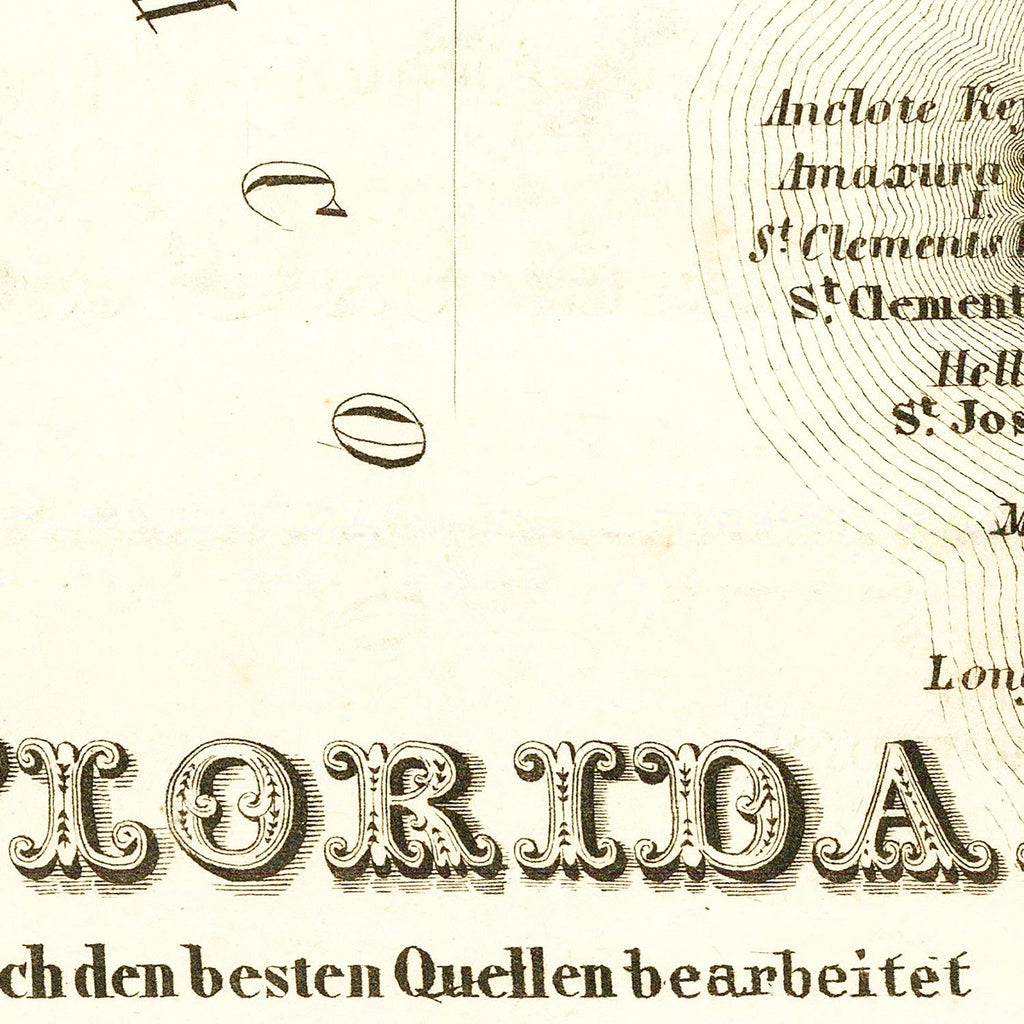 Anclote Key
Amaxura
I.
St. Clements
St. Clement
Hell
St. Jos
M
Long
FLORIDA
ch den besten Quellen bearbeitet